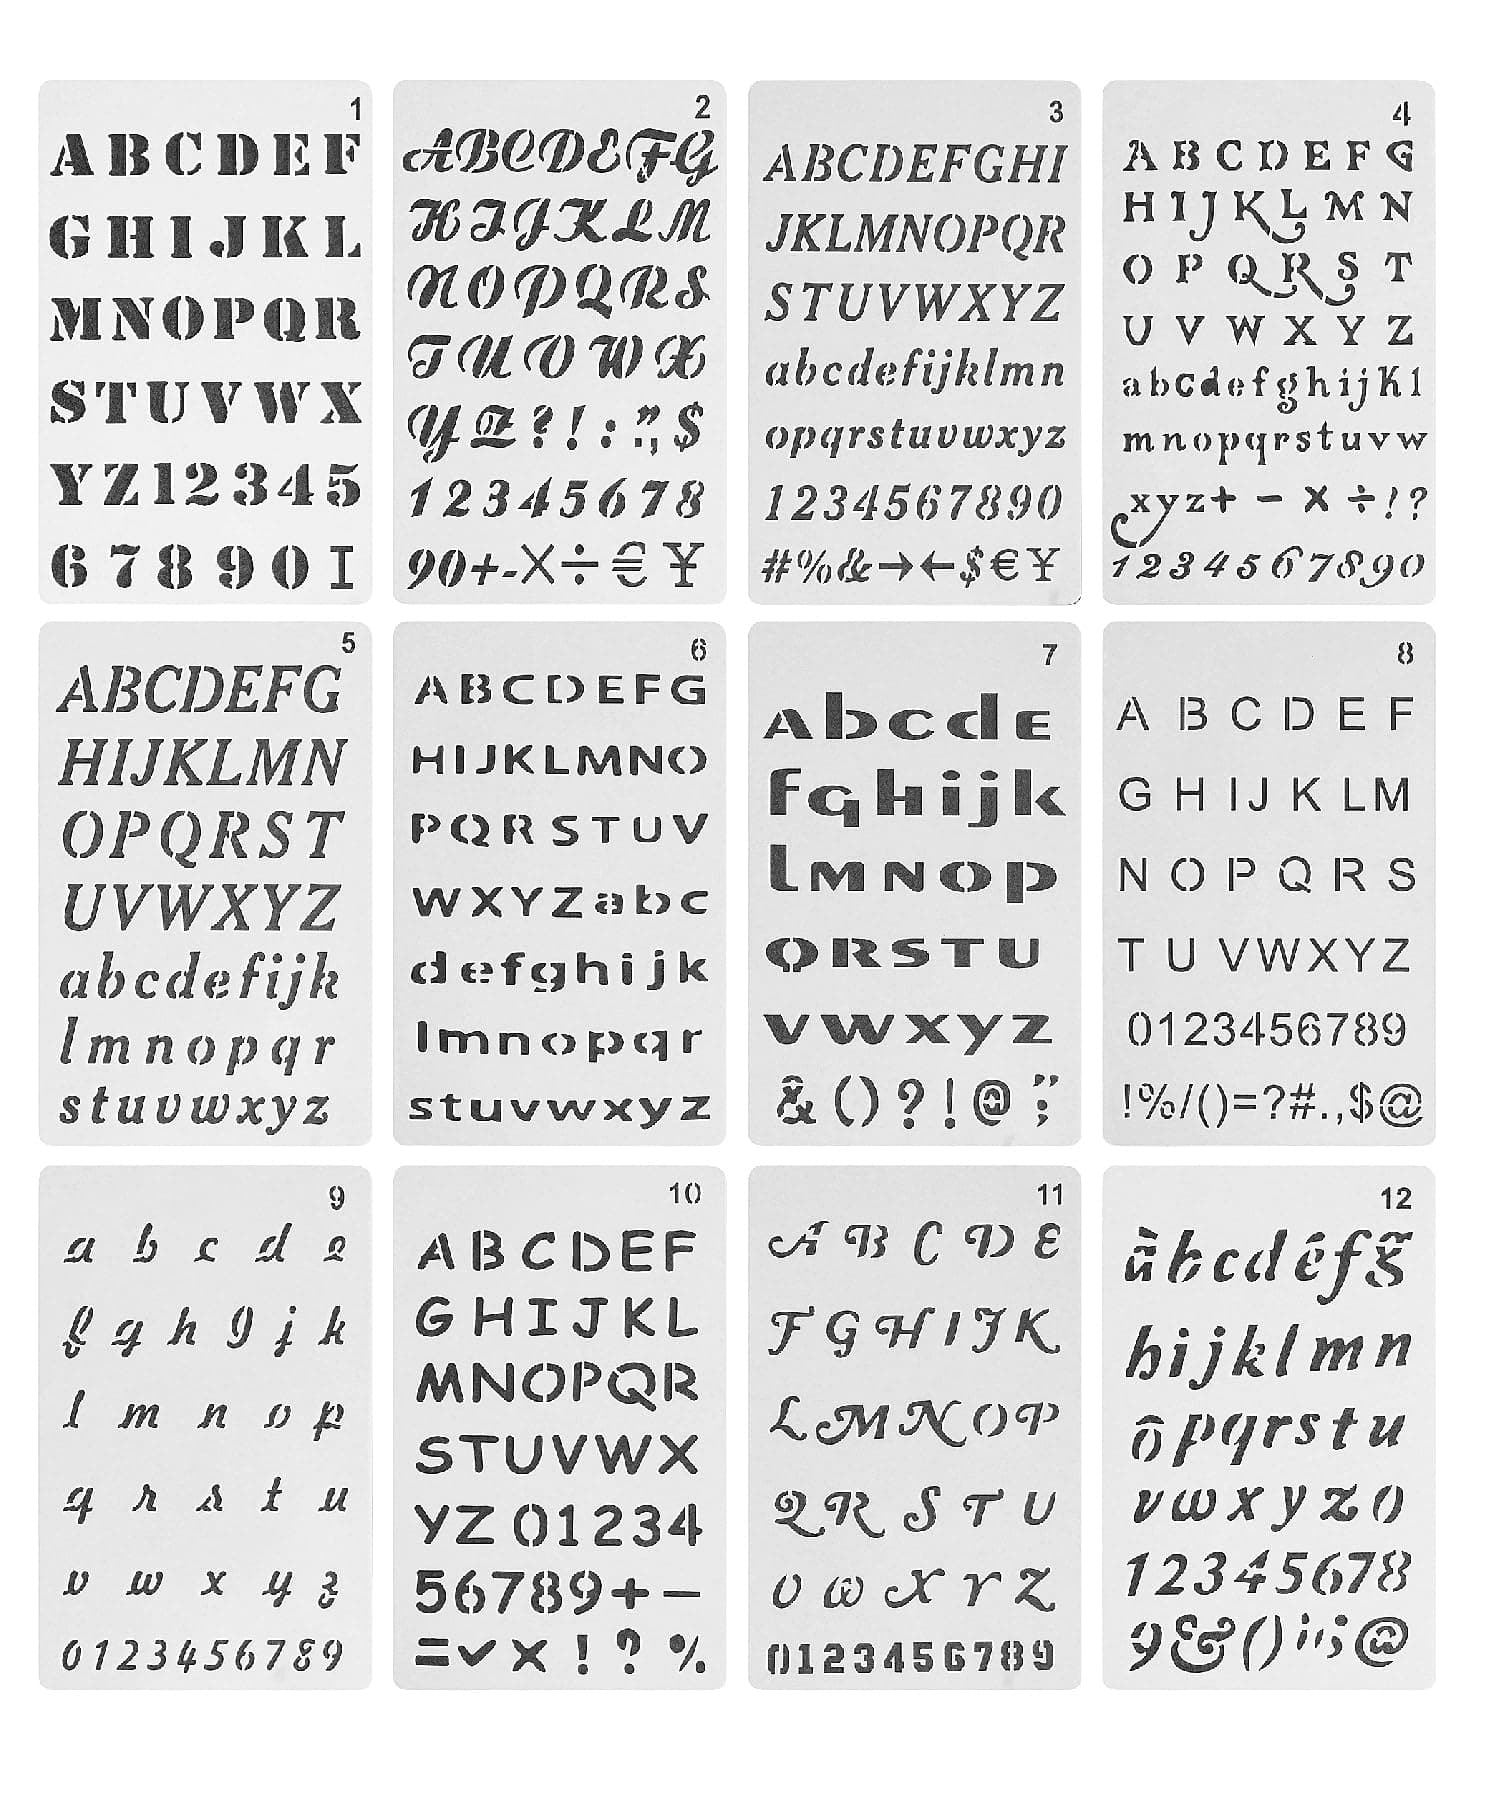 1
A B C D E F
G H I J K L
M N O P Q R
S T U V W X
Y Z 1 2 3 4 5
6 7 8 9 0 I
2
A B C D E F G
H I J K L M
N O P Q R S
T U V W X
Y Z ? ! : " ; , $
1 2 3 4 5 6 7 8
9 0 + - × ÷ € ¥
3
A B C D E F G H I
J K L M N O P Q R
S T U V W X Y Z
a b c d e f i j k l m n
o p q r s t u v w x y z
1 2 3 4 5 6 7 8 9 0
# % & → ← $ € ¥
4
A B C D E F G
H I J K L M N
O P Q R S T
U V W X Y Z
a b c d e f g h i j k l
m n o p q r s t u v w
x y z + - × ÷ ! ?
1 2 3 4 5 6 7 8 9 0
5
A B C D E F G
H I J K L M N
O P Q R S T
U V W X Y Z
a b c d e f i j k
l m n o p q r
s t u v w x y z
6
A B C D E F G
H I J K L M N O
P Q R S T U V
W X Y Z a b c
d e f g h i j k
l m n o p q r
s t u v w x y z
7
A b c d E
f g h i j k
l M N O p
Q R S T U
v w x y z
& ( ) ? ! @ " ;
8
A B C D E F
G H I J K L M
N O P Q R S
T U V W X Y Z
0 1 2 3 4 5 6 7 8 9
! % / ( ) = ? # . , $ @
9
a b c d e
f g h i j k
l m n o p
q r s t u
v w x y z
0 1 2 3 4 5 6 7 8 9
10
A B C D E F
G H I J K L
M N O P Q R
S T U V W X
Y Z 0 1 2 3 4
5 6 7 8 9 + -
= ✓ × ! ? %
11
A B C D E
F G H I J K
L M N O P
Q R S T U
V W X Y Z
0 1 2 3 4 5 6 7 8 9
12
à b c d é f g̃
h i j k l m n
ô p q r s t u
v w x y z 0
1 2 3 4 5 6 7 8
9 & ( ) ; @